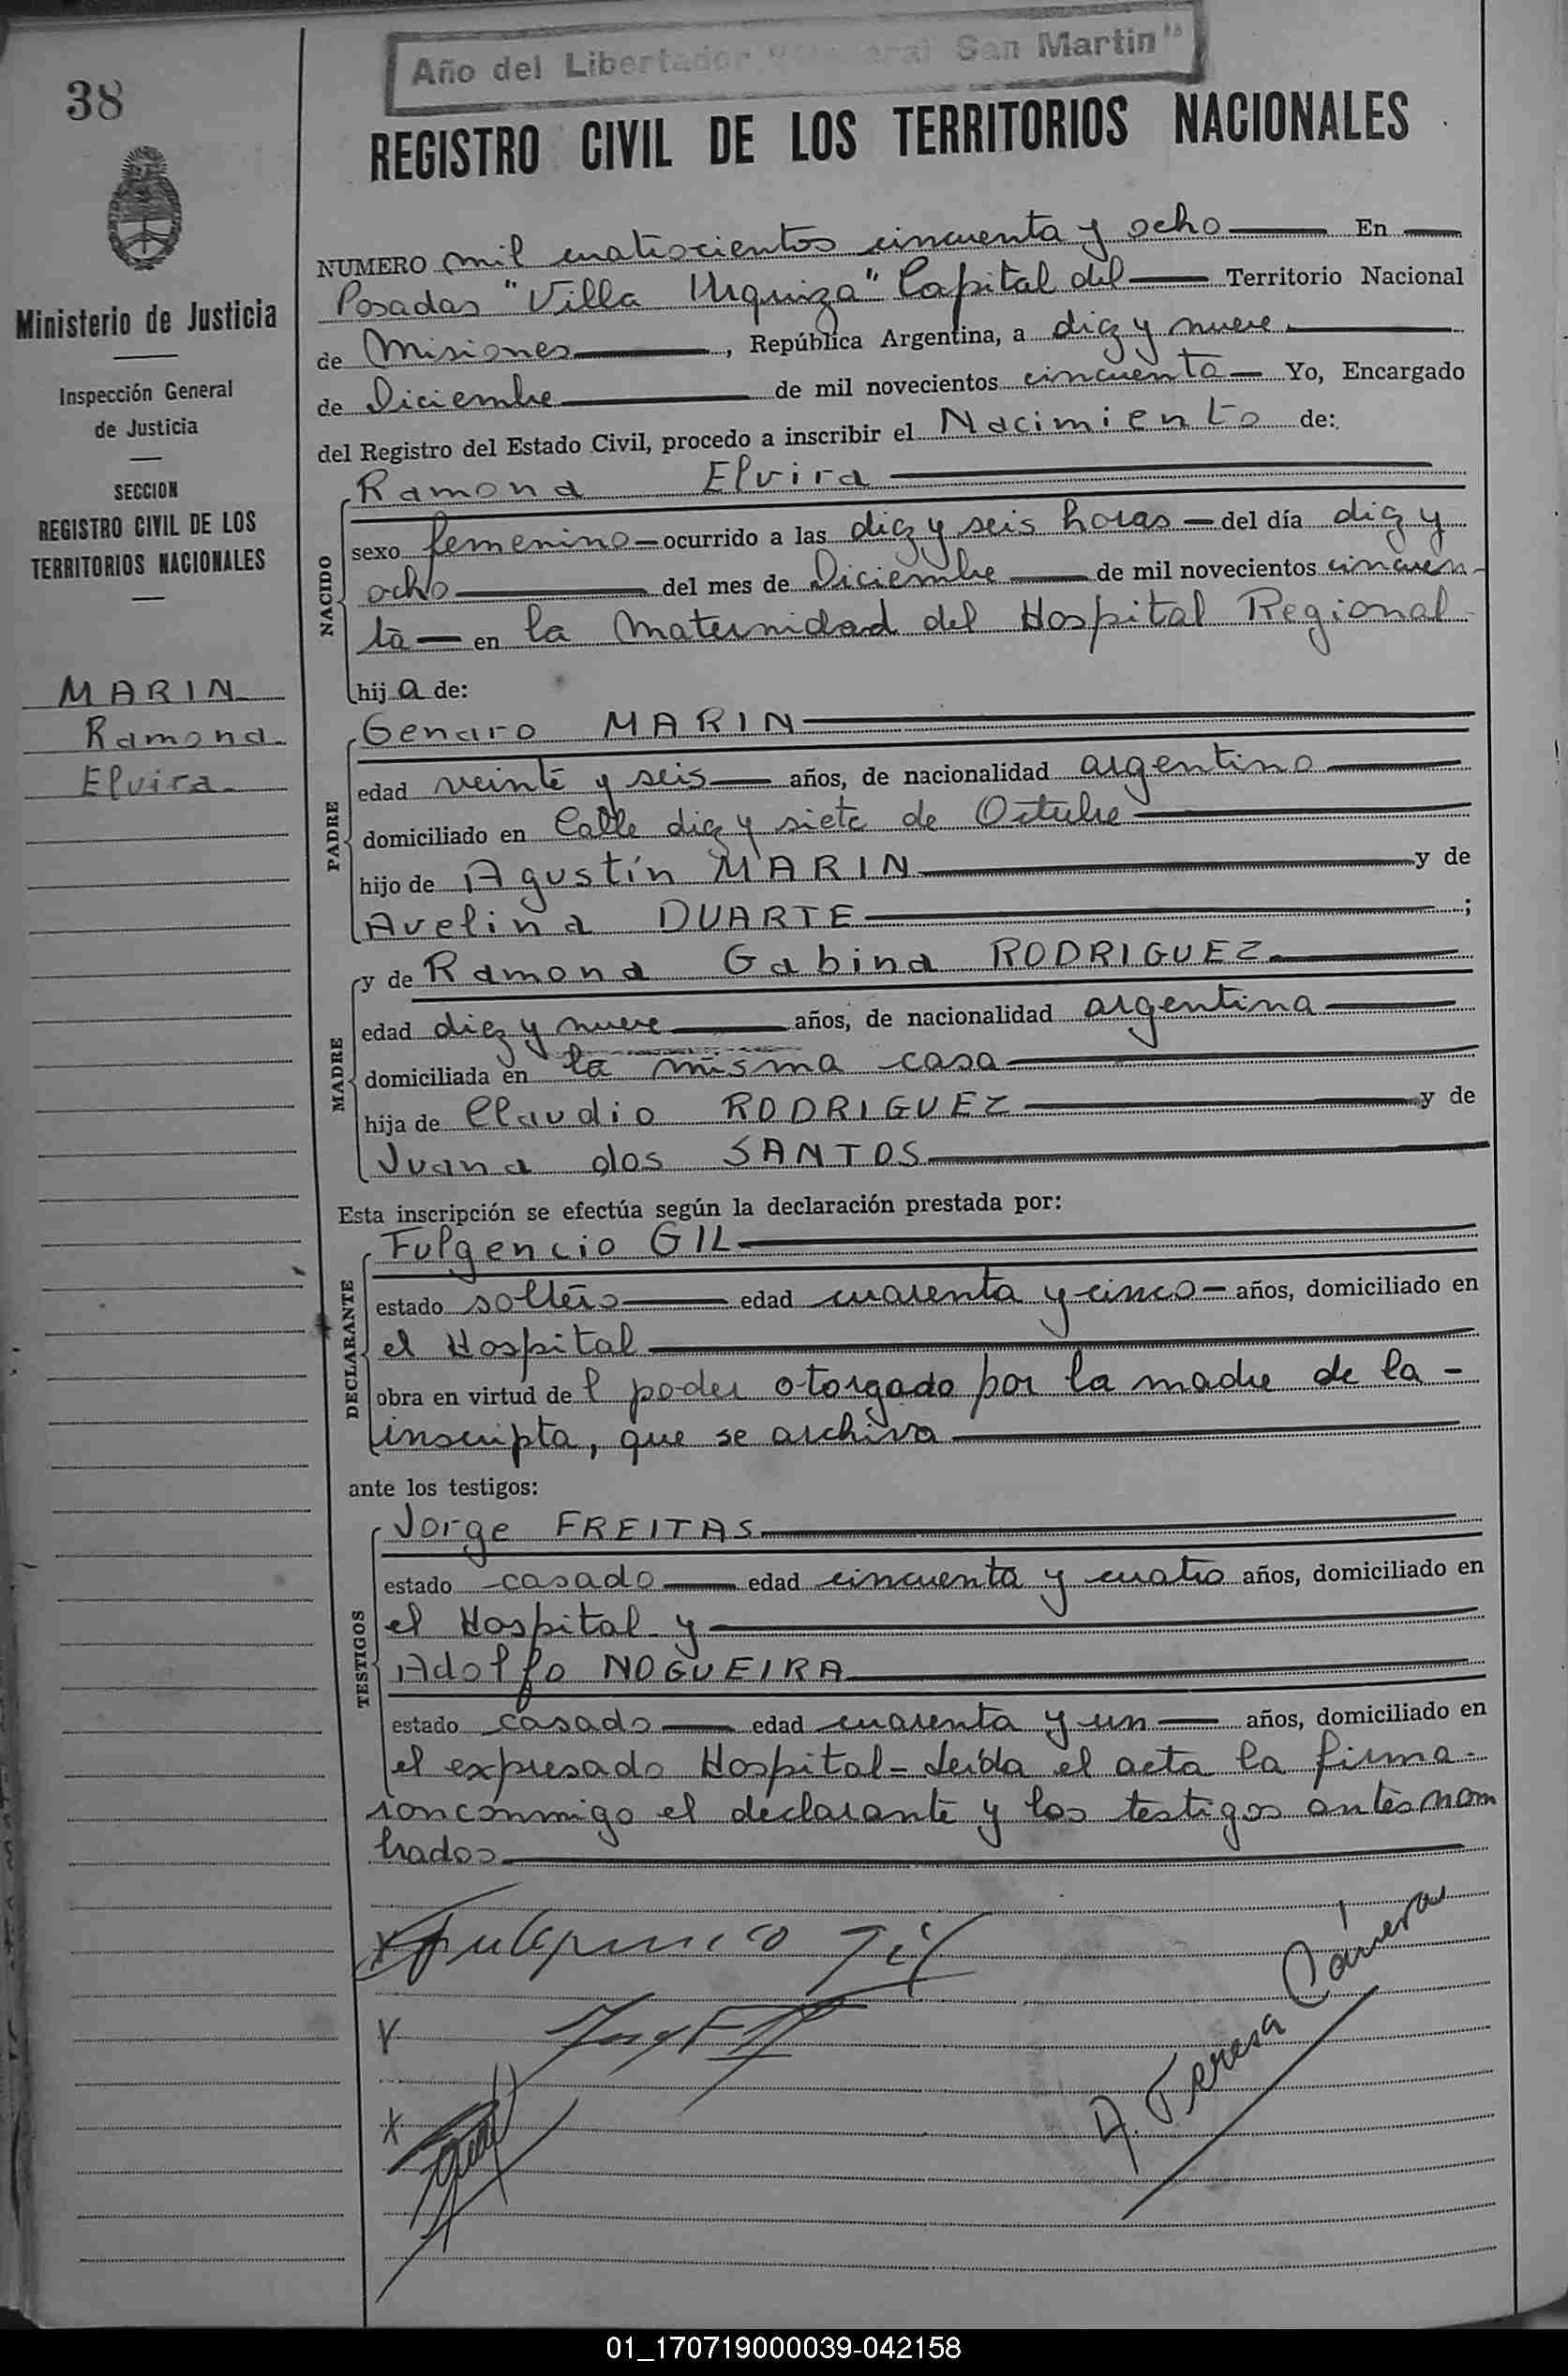 Año del Libertador "General San Martin"
38
REGISTRO CIVIL DE LOS TERRITORIOS NACIONALES
Ministerio de Justicia
Inspección General
de Justicia
SECCION
REGISTRO CIVIL DE LOS
TERRITORIOS NACIONALES
MARIN
Ramona
Elvira
NUMERO mil cuatrocientos cincuenta y ocho En
Posadas "Villa Urquiza" Capital del Territorio Nacional
de Misiones, República Argentina, a diez y nueve
de Diciembre de mil novecientos cincuenta Yo, Encargado
del Registro del Estado Civil, procedo a inscribir el Nacimiento de:
NACIDO
Ramona Elvira
sexo femenino ocurrido a las diez y seis horas del día diez y
ocho del mes de Diciembre de mil novecientos cincuen-
ta en la Maternidad del Hospital Regional
hija de:
PADRE
Genaro MARIN
edad veinte y seis años, de nacionalidad argentino
domiciliado en Calle diez y siete de Octubre
hijo de Agustín MARIN y de
Avelina DUARTE;
MADRE
y de Ramona Gabina RODRIGUEZ
edad diez y nueve años, de nacionalidad argentina
domiciliada en la misma casa
hija de Claudio RODRIGUEZ y de
Juana dos SANTOS
Esta inscripción se efectúa según la declaración prestada por:
DECLARANTE
Fulgencio GIL
estado soltero edad cuarenta y cinco años, domiciliado en
el Hospital
obra en virtud del poder otorgado por la madre de la -
inscripta, que se archiva
ante los testigos:
TESTIGOS
Jorge FREITAS
estado casado edad cincuenta y cuatro años, domiciliado en
el Hospital y
Adolfo NOGUEIRA
estado casado edad cuarenta y un años, domiciliado en
el expresado Hospital= Leída el acta la firma-
ron conmigo el declarante y los testigos antes nom
brados
Fulgencio Gil
A. Teresa Cámera
01_170719000039-042158